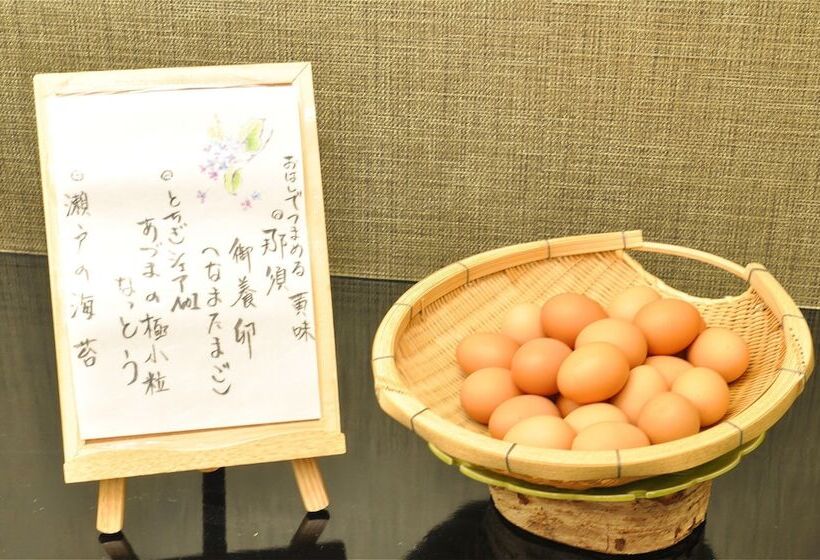 おはしでつまめる黄味
◎那須
御養卵
(なまたまご
◎とちぎシェアNo.1
あづまの極小粒
なっとう
◎瀬戸の海苔